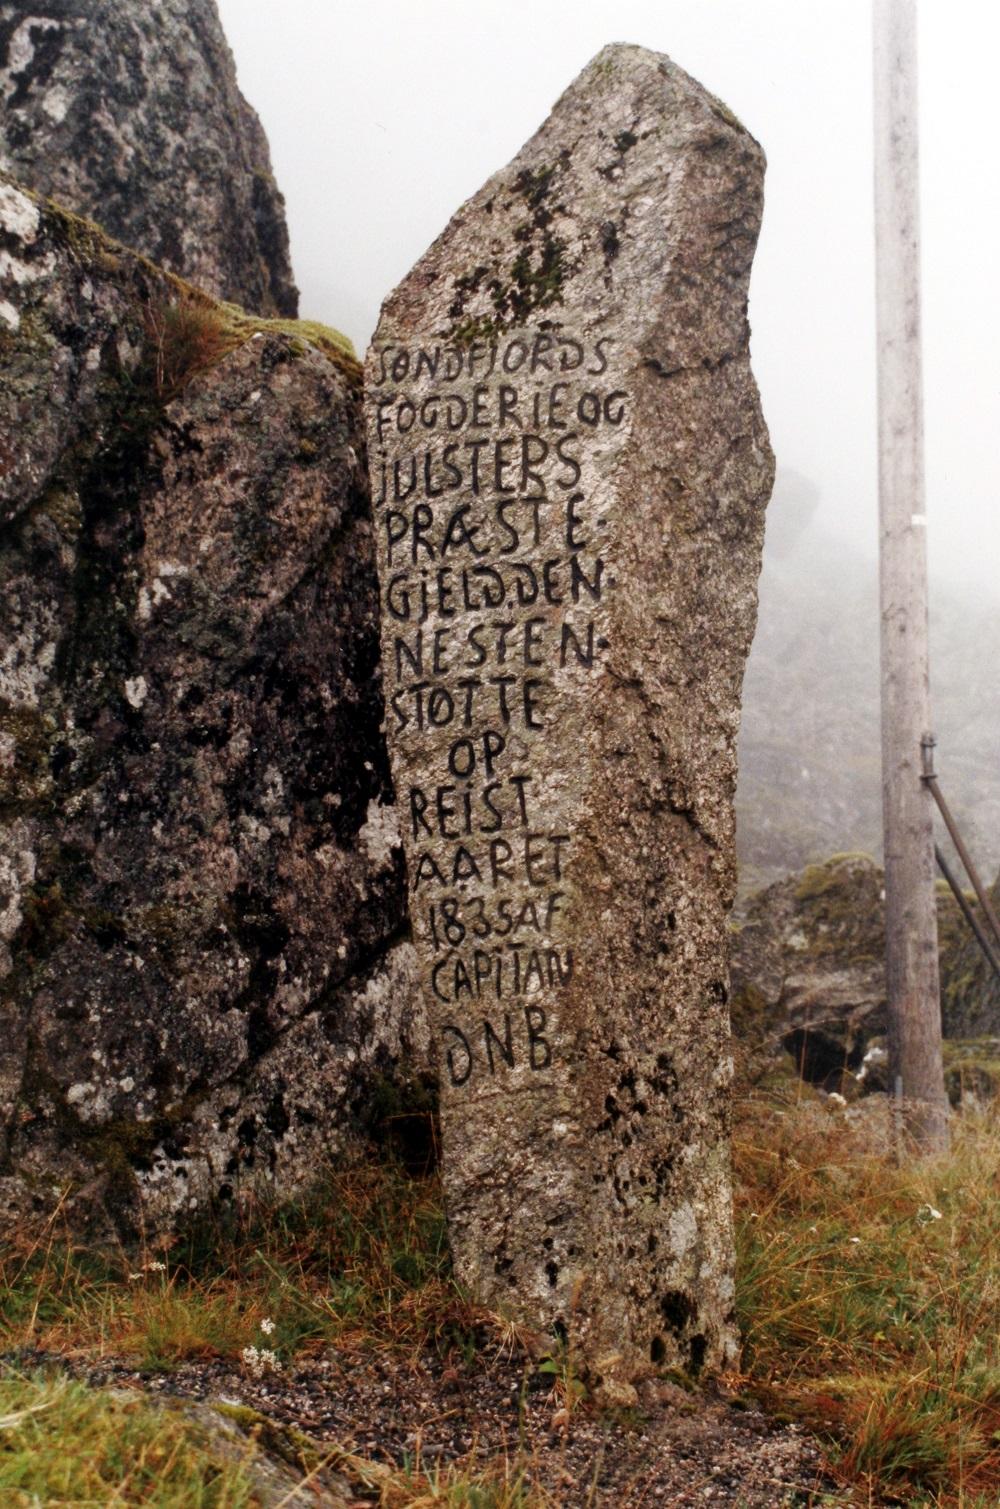 SØNDFJORDS
FOGDERIE OG
JULSTERS
PRÆSTE·
GJELD.DEN·
NESTEN·
STØTTE
OP
REIST
AARET
1835 AF
CAPITAN
DNB